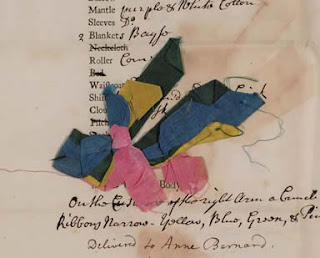 Mantle purple & White Cotton
Sleeves Do
2 Blankets Bayse
Neckcloth
Roller
Bed
Waistcoat
Shift
Clou
Pitch
Body
On the of the right Arm a Bunch
Ribbons Narrow - Yellow, Blue, Green, & Pi
Deliverd to Anne Bernard.